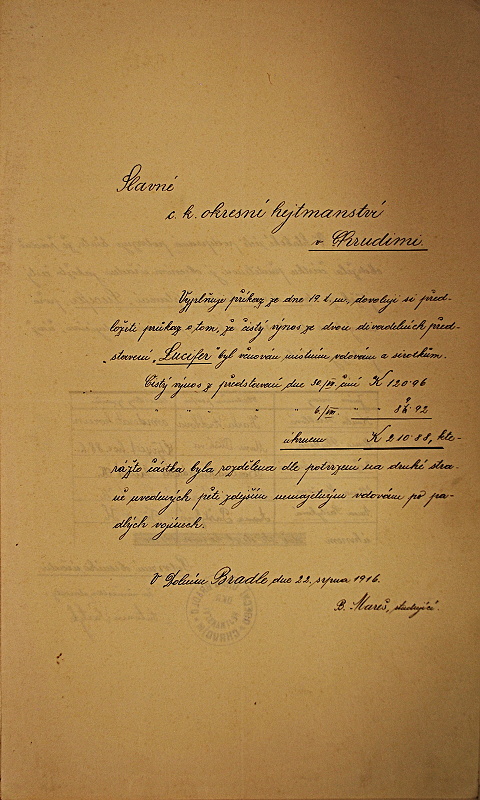 Slavné
c. k. okresní hejtmanství
v Chrudimi.
Vyplňuje příkaz ze dne 19. t. m., dovoluji si před-
ložiti průkaz o tom, že čistý výnos ze dvou divadelních před-
stavení „Lucifer" byl věnován místním vdovám a sirotkům.
Čistý výnos z představení dne 30/VII. činí K 120·96
" " " " 6./VIII. " " 89·92
úhrnem K 210·88, kte-
rážto částka byla rozdělena dle potvrzení na druhé stra-
ně uvedených pěti zdejším nemajetným vdovám po pa-
dlých vojínech.
V Dolním Bradle, dne 22. srpna 1916.
B. Mareš, studující.